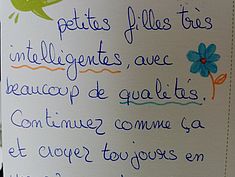 petites filles très
intelligentes, avec
beaucoup de qualités.
Continuez comme ça
et croyez toujours en